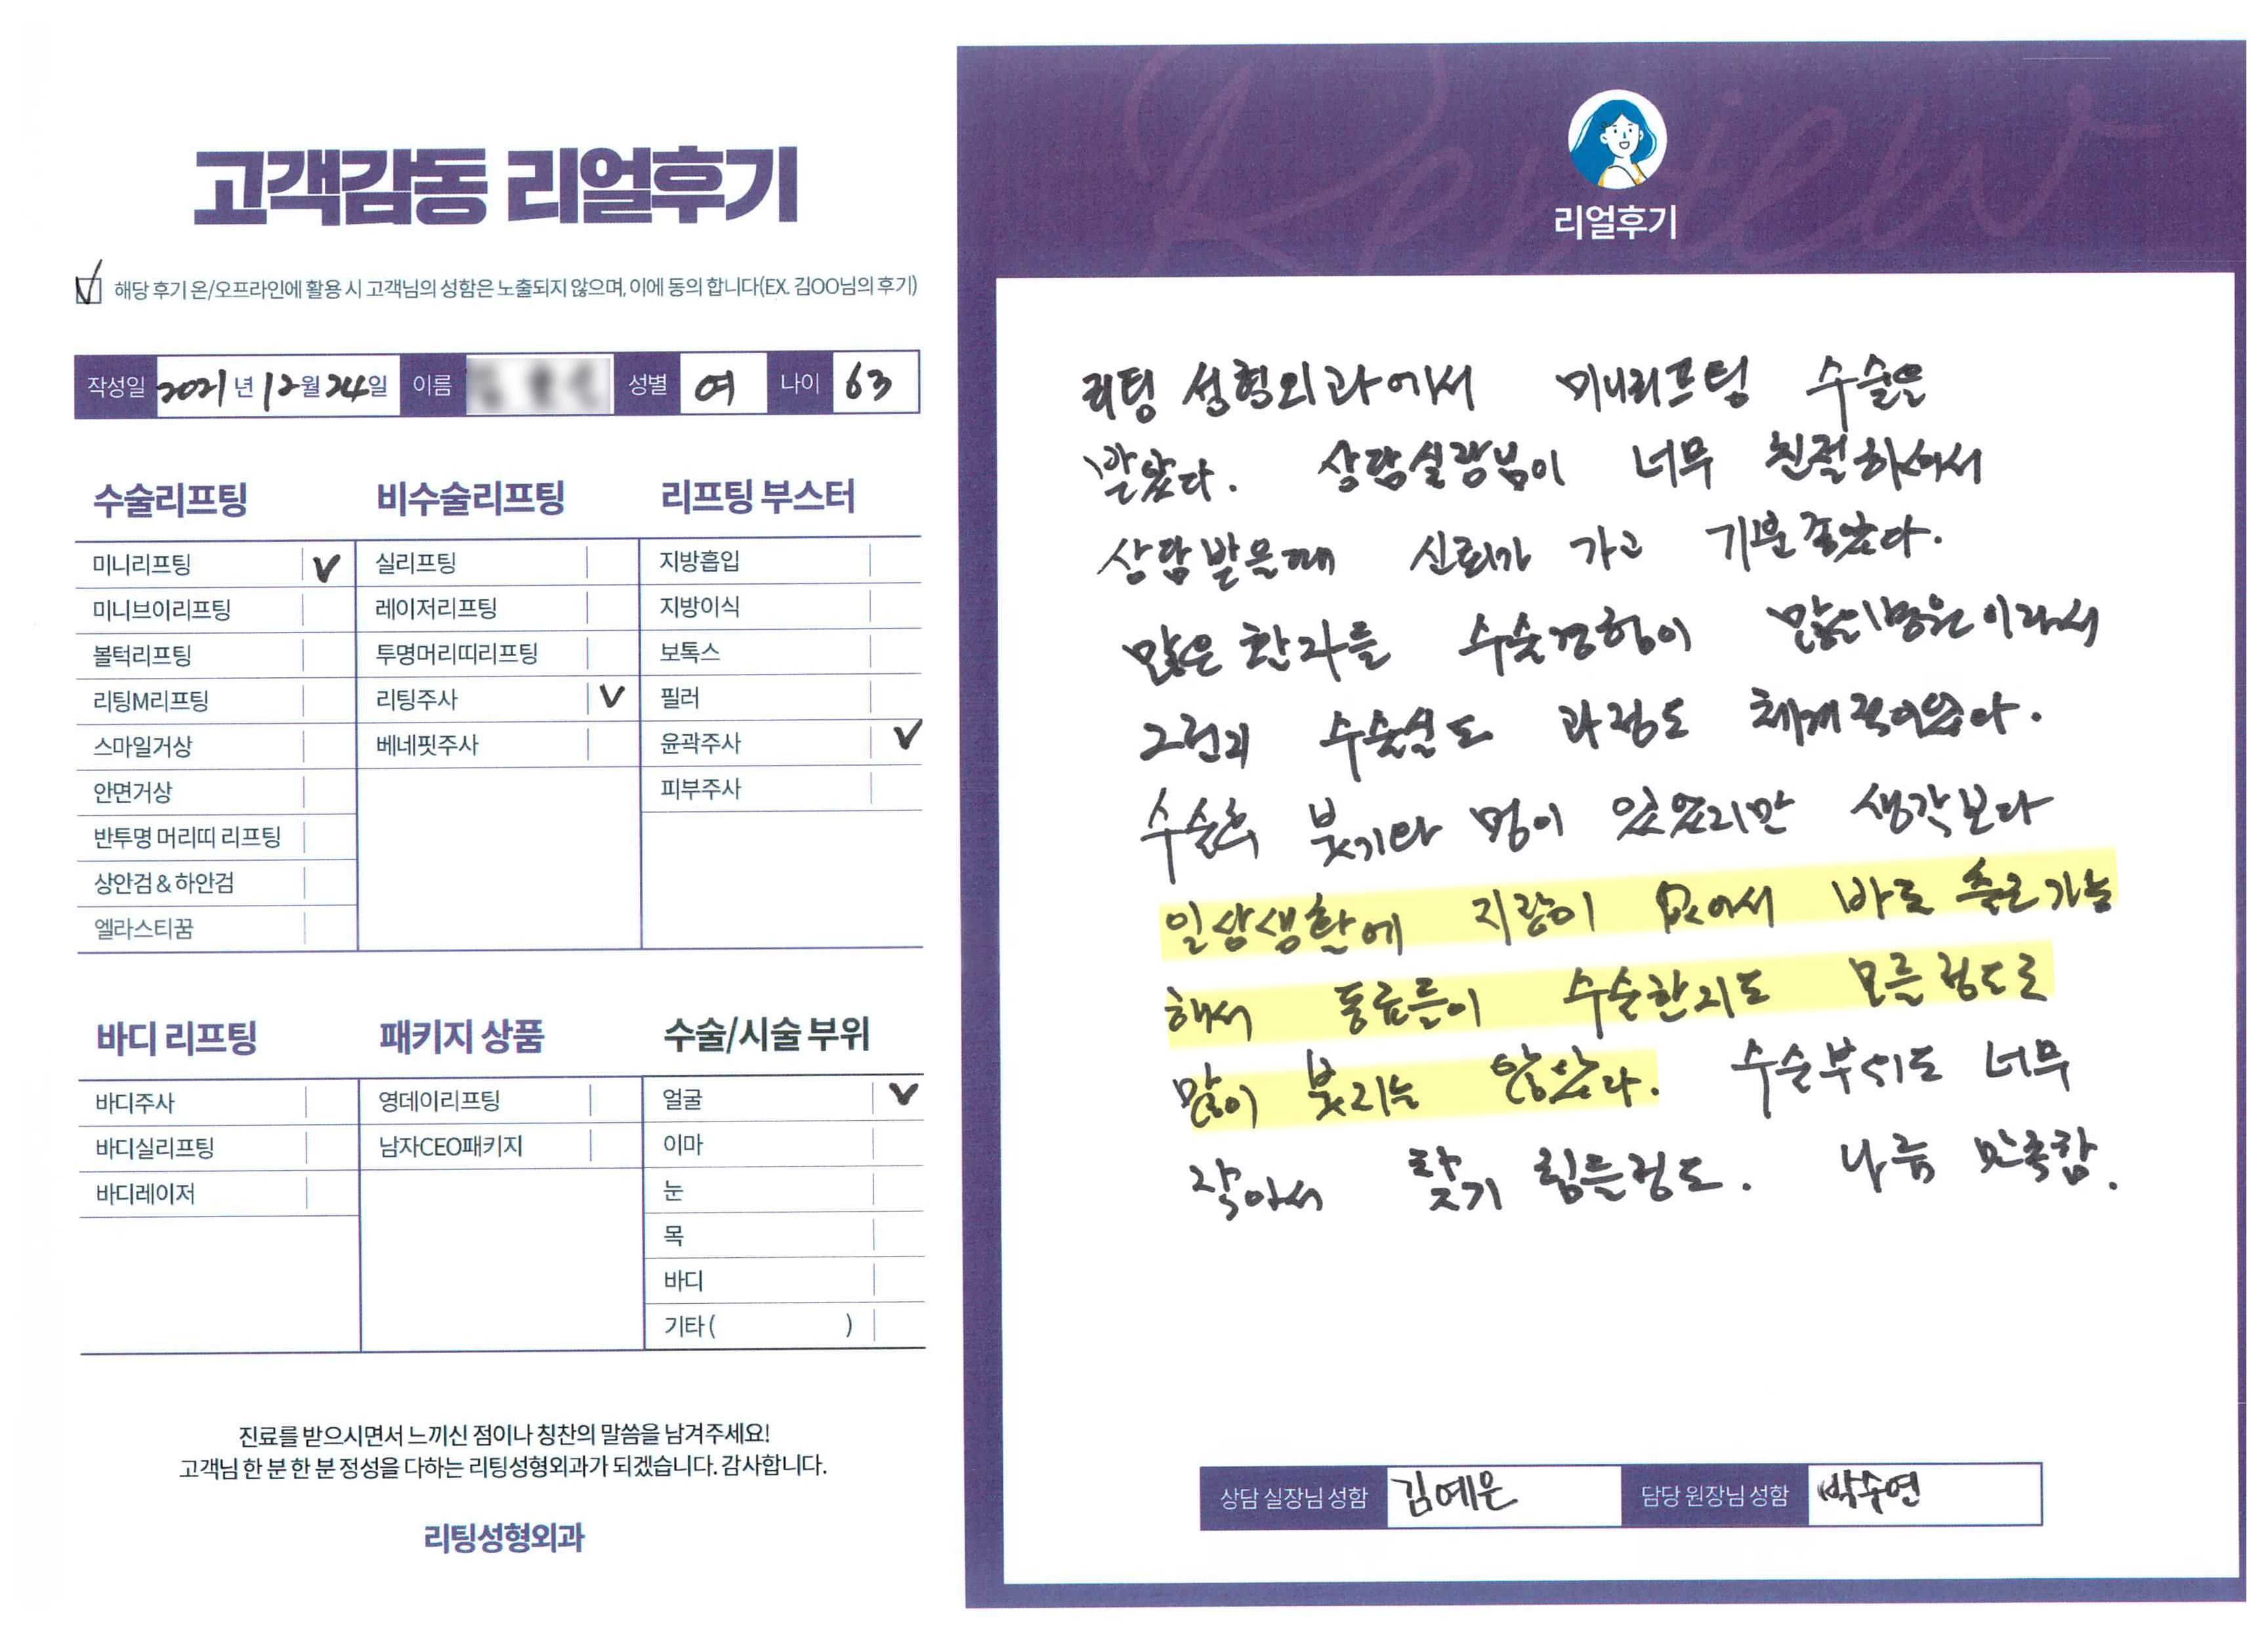 고객감동 리얼후기
해당 후기 온/오프라인에 활용 시 고객님의 성함은 노출되지 않으며, 이에 동의 합니다(EX. 김OO님의 후기)
작성일 2021년 12월 24일 이름 성별 여 나이 63
수술리프팅
미니리프팅 V
미니브이리프팅
볼턱리프팅
리팅M리프팅
스마일거상
안면거상
반투명 머리띠 리프팅
상안검 & 하안검
엘라스티꿈
비수술리프팅
실리프팅
레이저리프팅
투명머리띠리프팅
리팅주사 V
베네핏주사
리프팅 부스터
지방흡입
지방이식
보톡스
필러
윤곽주사 V
피부주사
바디 리프팅
바디주사
바디실리프팅
바디레이저
패키지 상품
영데이리프팅
남자CEO패키지
수술/시술 부위
얼굴 V
이마
눈
목
바디
기타 ( )
진료를 받으시면서 느끼신 점이나 칭찬의 말씀을 남겨주세요!
고객님 한 분 한 분 정성을 다하는 리팅성형외과가 되겠습니다. 감사합니다.
리팅성형외과
Review
리얼후기
리팅 성형외과에서 미니리프팅 수술을
받았다. 상담실장님이 너무 친절하셔서
상담받을때 신뢰가 가고 기분좋았다.
많은 환자를 수술경험이 많은병원이라서
그런지 수술실도 과정도 체계적이었다.
수술후 붓기와 멍이 있었지만 생각보다
일상생활에 지장이 없어서 바로 출근가능
해서 동료들이 수술한지도 모를정도로
많이 붓지는 않았다. 수술부위도 너무
작아서 찾기 힘든정도. 나름 만족함.
상담 실장님 성함 김예은 담당 원장님 성함 박수연